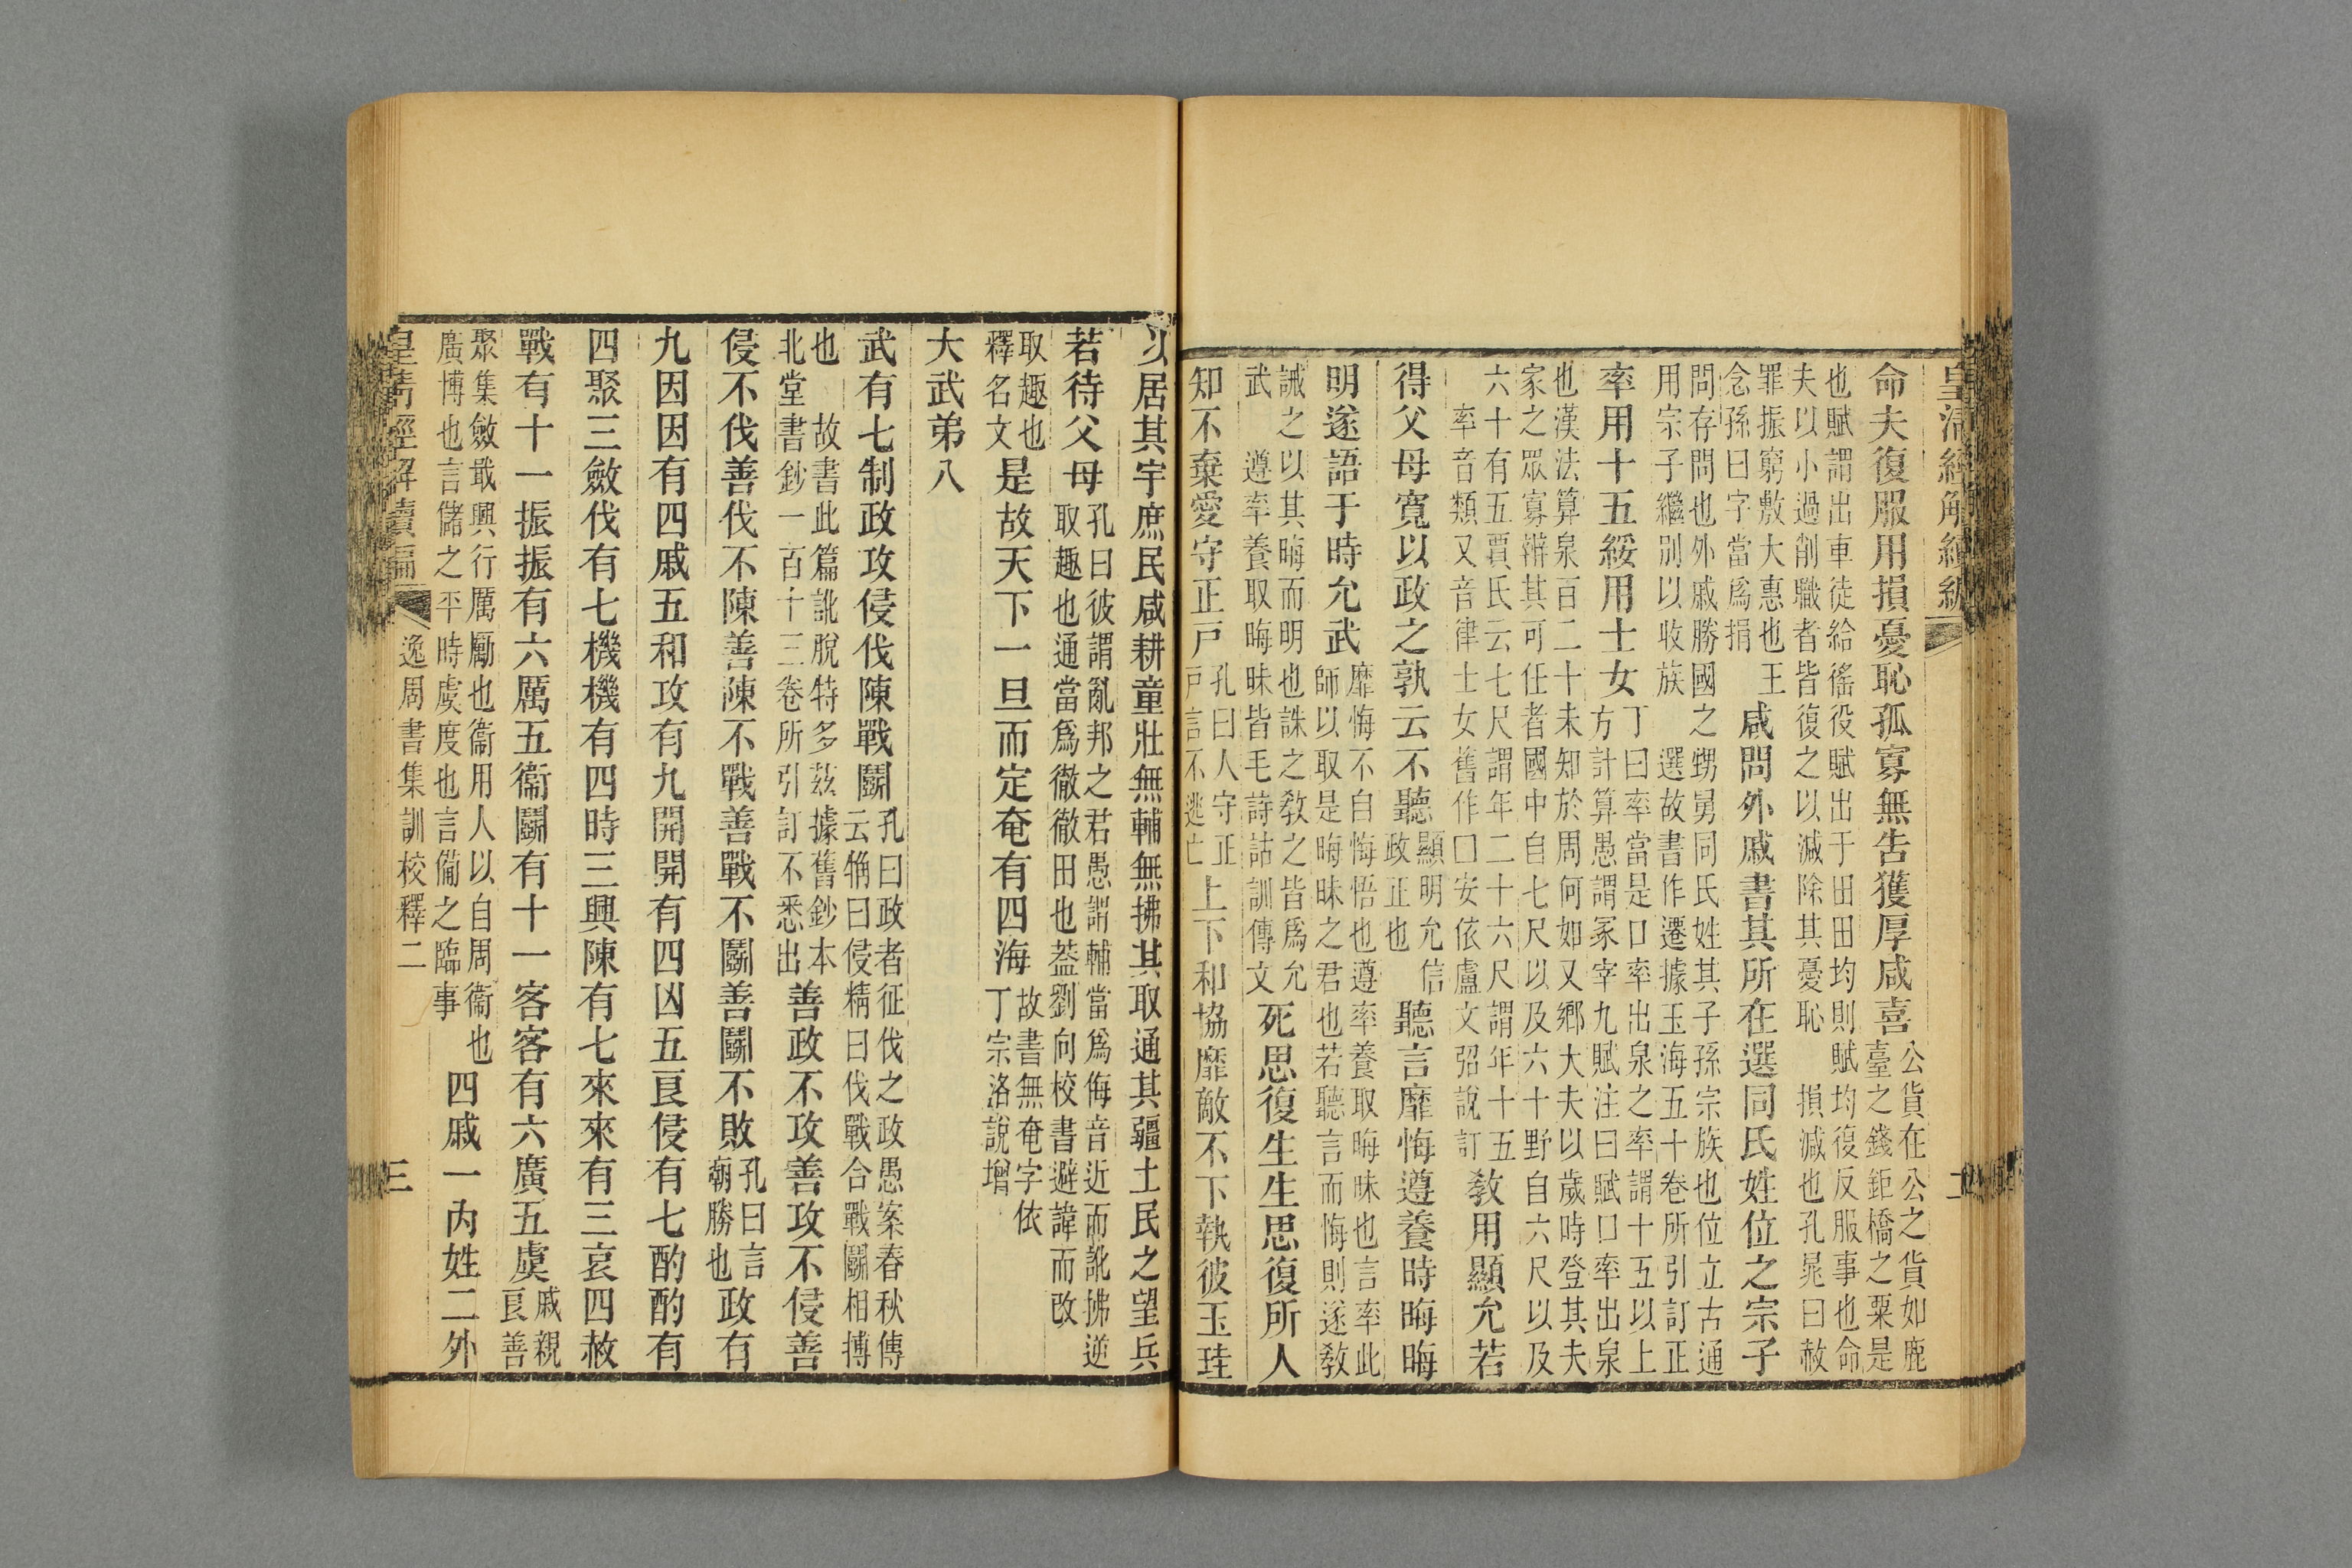 皇清經解續編
二
命夫復服用損憂恥孤寡無告獲厚咸喜公貨在公之貨如鹿臺之錢鉅橋之粟是
也賦謂出車徒給徭役賦出于田田均則賦均復反服事也命夫以小過削職者皆復之以減除其憂恥損減也孔晁曰赦
罪振窮敷大惠也王念孫曰字當爲捐咸問外戚書其所在選同氏姓位之宗子
問存問也外戚勝國之甥舅同氏姓其子孫宗族也位立古通用宗子繼別以收族選故書作遷據玉海五十卷所引訂正
率用十五綏用士女丁曰率當是口率出泉之率謂十五以上方計算愚謂冢宰九賦注曰賦口率出泉
也漢法算泉百二十未知於周何如又鄉大夫以歲時登其夫家之眾寡辨其可任者國中自七尺以及六十野自六尺以及
六十有五賈氏云七尺謂年二十六尺謂年十五率音類又音律士女舊作口安依盧文弨說訂教用顯允若
得父母寬以政之孰云不聽顯明允信政正也聽言靡悔遵養時晦晦
明遂語于時允武靡悔不自悔悟也遵率養取晦昧也言率此師以取是晦昧之君也若聽言而悔則遂教
誡之以其晦而明也誅之教之皆爲允武遵率養取晦昧皆毛詩詁訓傳文死思復生生思復所人
知不棄愛守正戸孔曰人守正戸言不逃亡上下和協靡敵不下執彼玉珪
以居其宇庶民咸耕童壯無輔無拂其取通其疆土民之望兵
若待父母孔曰彼謂亂邦之君愚謂輔當爲侮音近而訛拂逆取趣也通當爲徹徹田也葢劉向校書避諱而改
取趣也釋名文是故天下一旦而定奄有四海故書無奄字依丁宗洛說增
大武弟八
武有七制政攻侵伐陳戰鬭孔曰政者征伐之政愚案春秋傳云觕曰侵精曰伐戰合戰鬭相搏
也故書此篇訛脫特多茲據舊鈔本北堂書鈔一百十三卷所引訂不悉出善政不攻善攻不侵善
侵不伐善伐不陳善陳不戰善戰不鬭善鬭不敗孔曰言廟勝也政有
九因因有四戚五和攻有九開開有四凶五良侵有七酌酌有
四聚三斂伐有七機機有四時三興陳有七來來有三哀四赦
戰有十一振振有六厲五衞鬭有十一客客有六廣五虞戚親良善
聚集斂戢興行厲勵也衞用人以自周衞也廣博也言儲之平時虞度也言備之臨事四戚一內姓二外
皇清經解續編
逸周書集訓校釋二
三